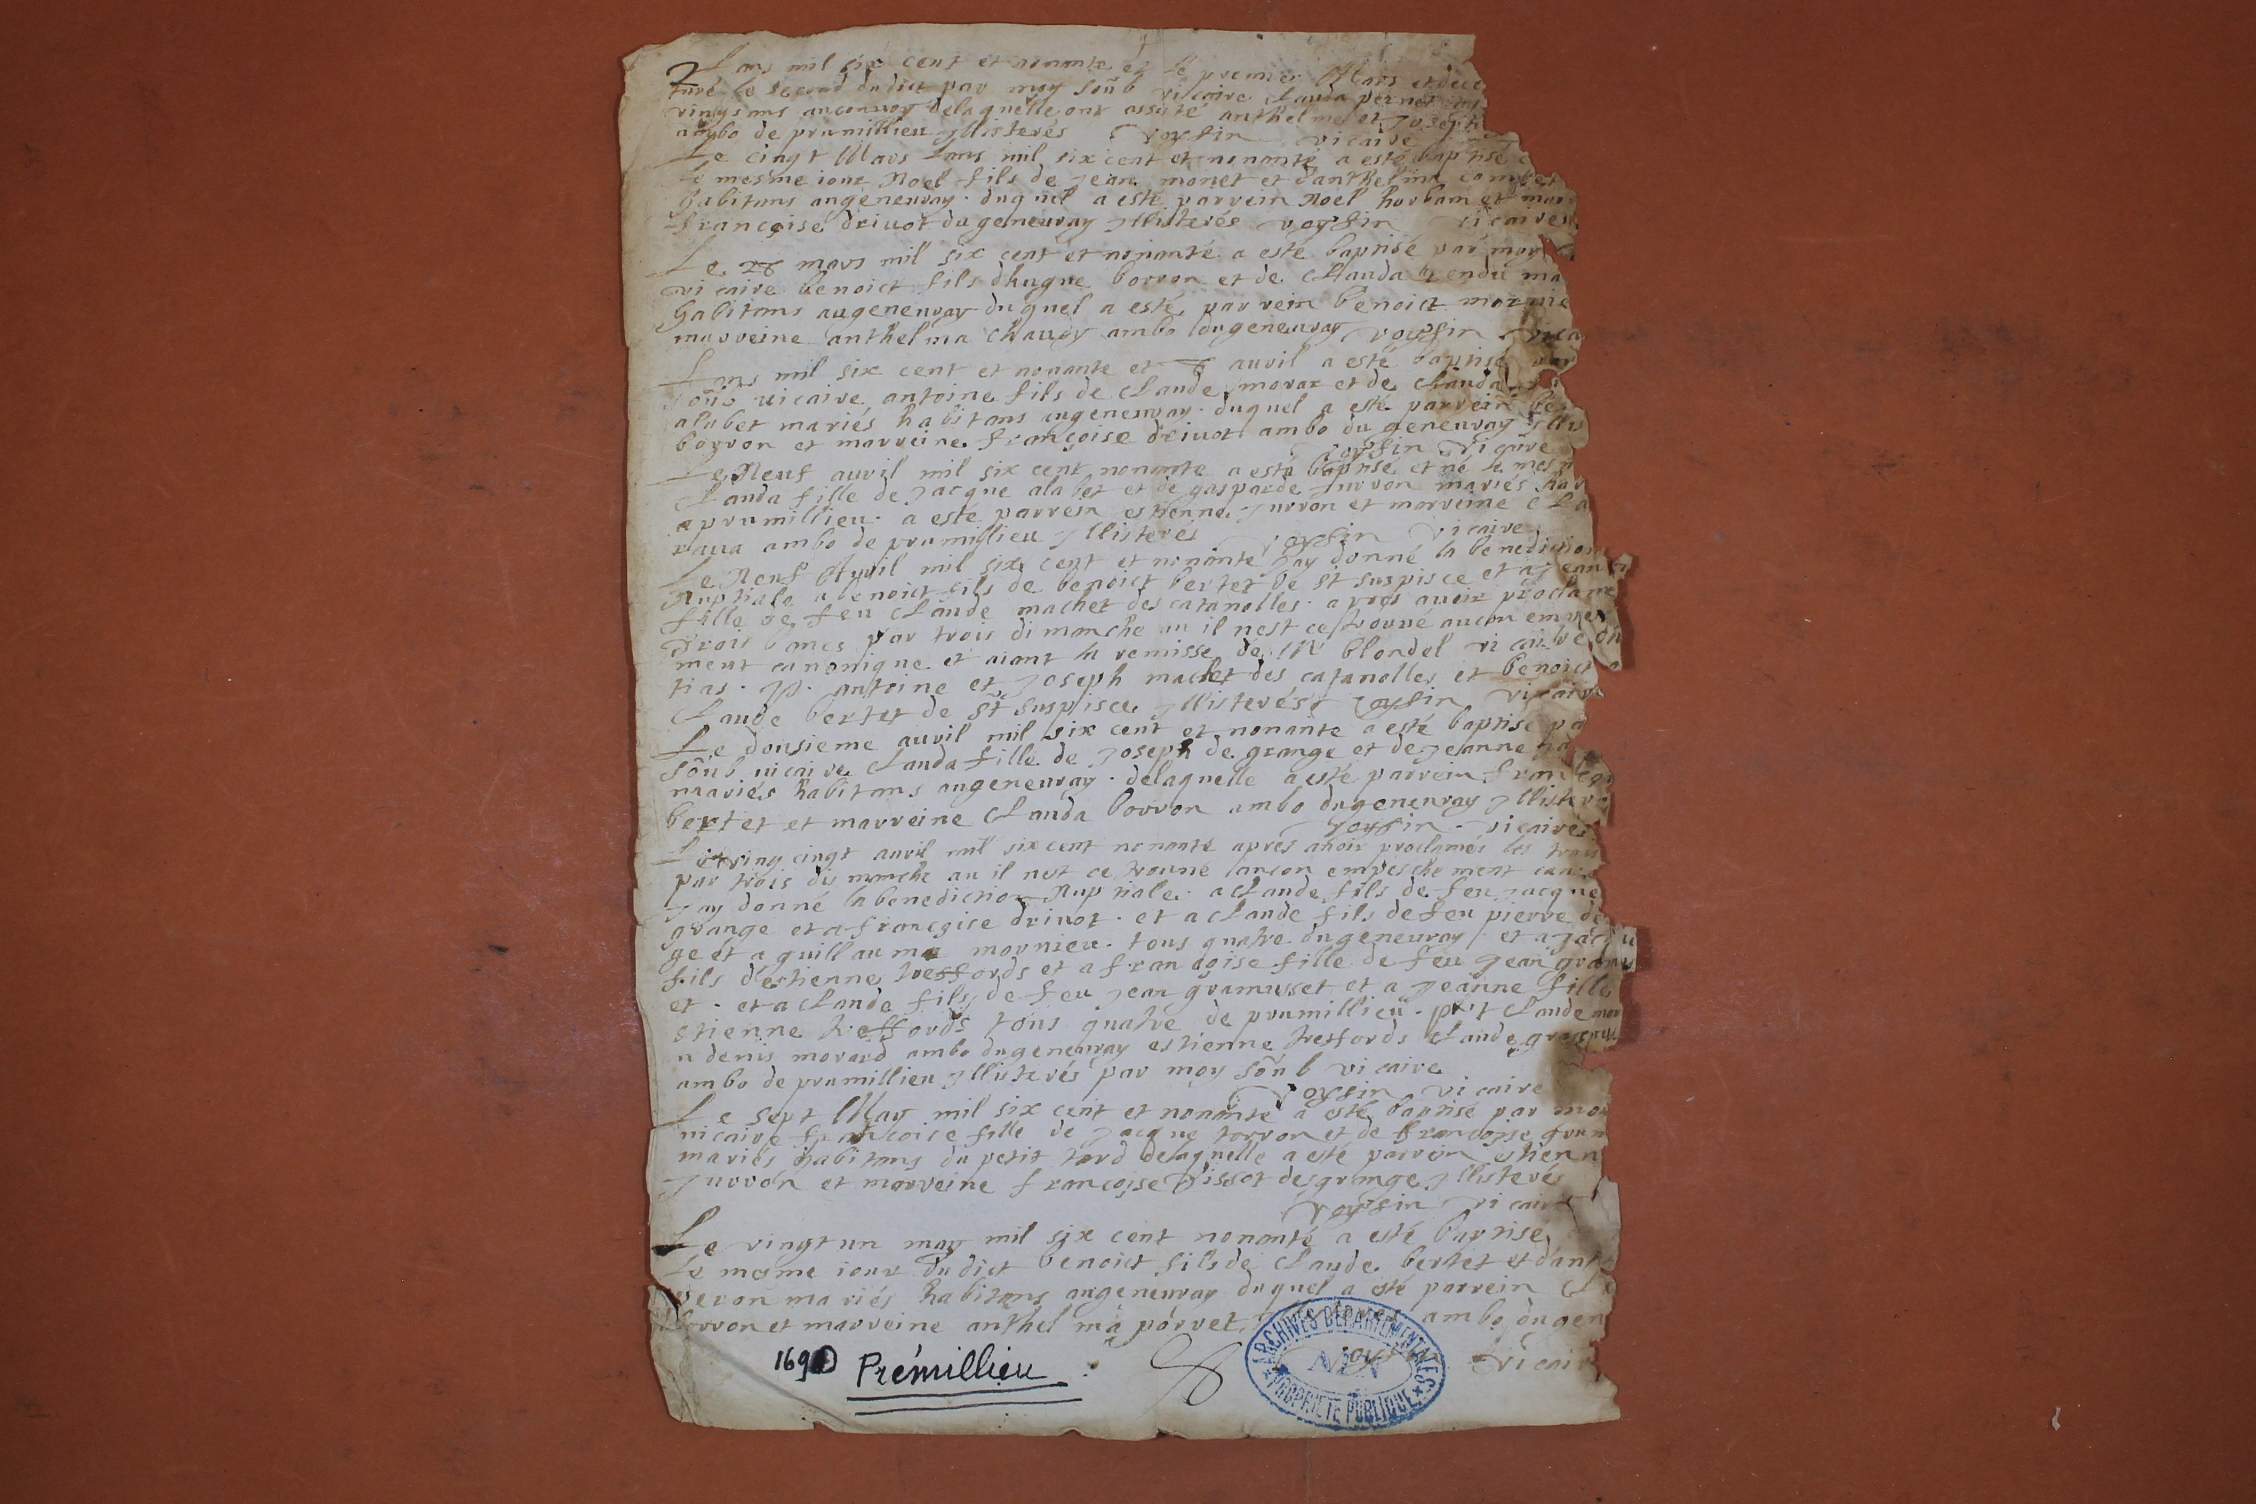 Lans mil six cent et nonante et le premier Mars et dece
turé le second dudict par moy soub vicaire Clauda pernet
vingt ans auconvoy delaquelle ont assisté anthelme et Joseph
ambo de prumillieu Jllisterés voysin vicaire
Le cinqt Mars Lans mil six cent et nonante a esté baptisé
le mesme iour Noel fils de Jean monet et danthelma
habitans augeneuray. duquel a esté parrein Noel et mar
françoise drivot du geneuray Jllisterés voysin vicaire
Le 26 mars mil six cent et nonante a esté baptisé par moy
vicaire benoict fils dhugue borron et de Clauda ma
habitans augeneuray duquel a esté parrein benoict
marreine anthelma Chaudy ambo dugeneuray voysin vica
Lans mil six cent et nonante et auvril a esté baptisé par
soub vicaire antoine fils de Claude moraz et de Clauda
alabet mariés habitans augeneuray. duquel a esté parrein be
borron et marreine françoise drivot ambo du geneuray Jllis
voysin vicaire
Le Neuf auvril mil six cent nonante a esté baptisé et né le mesm
Clauda fille de Jacque alabet et de gasparde Jurron mariés hab
a prumillieu. a esté parrein estienne Jurron et marreine Cla
ambo de prumillieu Jllisterés voysin vicaire
Le Neuf Avvil mil six cent et nonante Jay donné la benediction
Nuptiale a benoict fils de benoict bertet de St suspisce et a Jean
fille de feu Claude machet des catanolles. apres avoir proclamé
trois bancs par trois dimanche ou il nest ce trouvé aucun empes
ment canonique et aiant la remisse de Mr blondel vicaire
tias. P. antoine et Joseph machet des catanolles et benoict
Claude bertet de St suspisce Jllisterés voysin vicaire
Le dousieme auvril mil six cent et nonante a esté baptisé pa
soub vicaire Clauda fille de Joseph de grange et de Jeanne
mariés habitans augeneuray. delaquelle a esté parrein françoi
bertet et marreine Clauda borron ambo dugeneuray Jllisteré
voysin vicaire
Le ving cinqt auvril mil six cent nonante après avoir proclamés les trois
par trois dimanche ou il nest ce trouvé aucon empeschement
Jay donné la benediction Nuptiale. a Claude fils de feu Jacque
grange et a françoise drivot. et a Claude fils de feu pierre de
ge et a guillauma mornieu. tous quatre dugeneuray et a Jacqu
fils destienne treffords et a françoise fille de feu Jean gramu
et. et a Claude fils de feu Jean gramusset et a Jeanne fille
stienne treffords tous quatre de prumillieu. pnt Claude mor
denis morard ambo dugeneuray estienne treffords Claude
ambo de prumillieu Jllisterés par moy soub vicaire
voysin vicaire
Le sept May mil six cent et nonante a esté baptisé par moy
vicaire françoise fille de Jacque torron et de françoise
mariés habitans du petit tard delaquelle a esté parrein estienn
Jurron et marreine françoise des grange Jllisterés
voysin vicaire
Le vingt un may mil six cent nonante a esté baptisé
Le mesme iour dudict benoict fils de Claude bertet et dant
mariés habitans augeneuray duquel a esté parrein Cl
borron et marreine anthelma porret ambo dugen
voysin vicair
1690 Prémillieu
ARCHIVES DÉPARTEMENTALES
AIN
PROPRIÉTÉ PUBLIQUE